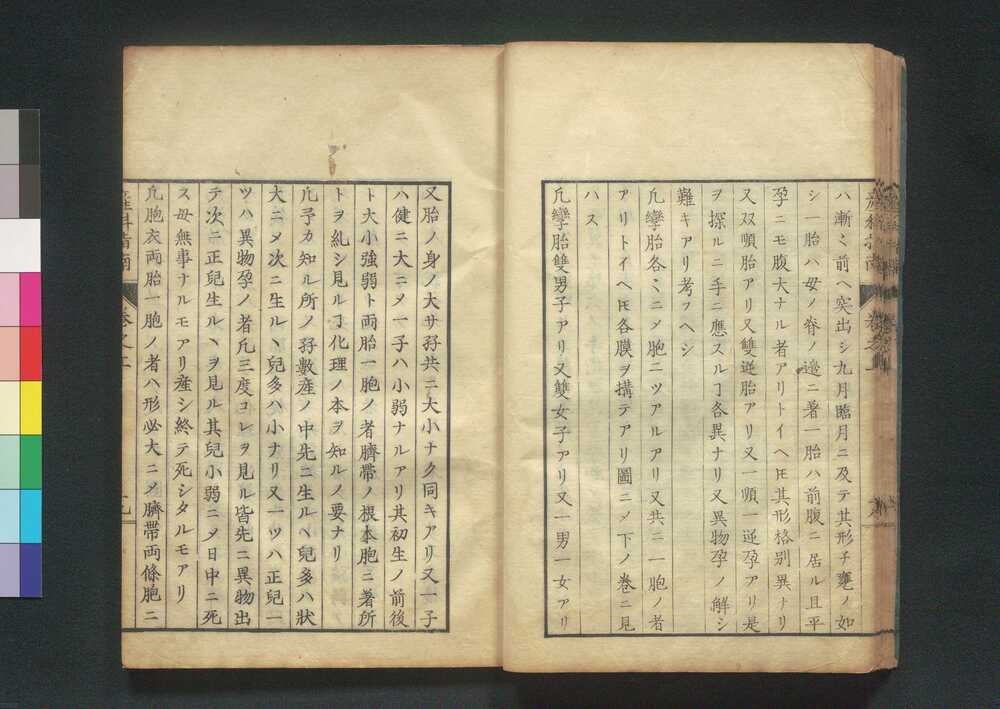 ハ漸〻前ヘ突出シ九月臨月ニ及テ其形チ甕ノ如
シ一胎ハ母ノ脊ノ邉ニ著一胎ハ前腹ニ居ル且平
孕ニモ腹大ナル者アリトイヘ𪜈其形格別異ナリ
又双順胎アリ又雙逆胎アリ又一順一逆孕アリ是
ヲ探ルニ手ニ應スルヿ各異ナリ又異物孕ノ解シ
難キアリ考フヘシ
凢孿胎各〻ニメ胞ニツアルアリ又共ニ一胞ノ者
アリトイヘ𪜈各膜ヲ搆テアリ圖ニメ下ノ巻ニ見
ハス
凢孿胎雙男子アリ又雙女子アリ又一男一女アリ
又胎ノ身ノ大サ孖共ニ大小ナク同キアリ又一子
ハ健ニ大ニメ一子ハ小弱ナルアリ其初生ノ前後
ト大小強弱ト両胎一胞ノ者臍帯ノ根本胞ニ著所
トヲ糺シ見ルヿ化理ノ本ヲ知ルノ要ナリ
凢予カ知ル所ノ孖數産ノ中先ニ生ルヽ兒多ハ狀
大ニメ次ニ生ルヽ兒多ハ小ナリ又一ツハ正兒一
ツハ異物孕ノ者凢三度コレヲ見ル皆先ニ異物出
テ次ニ正兒生ルヽヲ見ル其兒小弱ニメ日中ニ死
ス母無事ナルモアリ産シ終テ死シタルモアリ
凢胞衣両胎一胞ノ者ハ形必大ニメ臍帯両條胞ニ